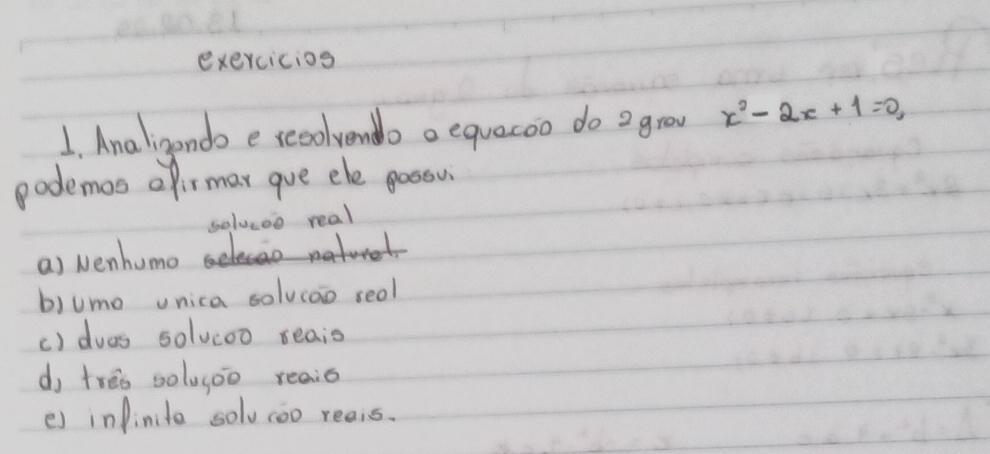 exercicios
1. Analizando e resolvendo a equacão do 2 grau x² - 2x + 1 = 0,
podemos afirmar que ele possui
solucão real
a) Nenhuma selecão natural
b) uma unica solucão real
c) duas solucoo reais
d) três solução reais
e) infinita solu cão reais.